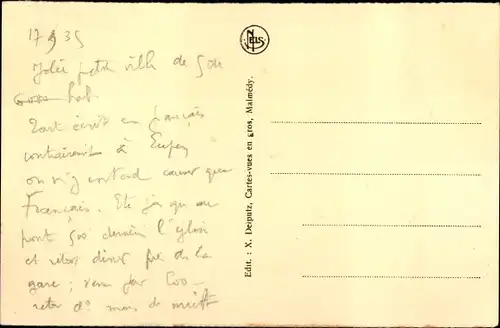 17 9 35
Jolie petite ville de 500
hab.
Tout écrit en français
contrairement à Eupen
on n'y entend causer que
Français. Eté jusqu'au
pont 500 derrière l'église
et retour dîner près de la
gare ; par
de
NELS
Edit. : X. Delputz, Cartes-vues en gros, Malmédy.